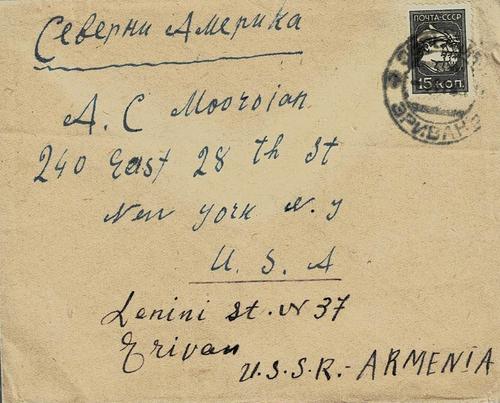 Северни Америка
ПОЧТА-СССР
15 КОП.
ЭРИВАНЬ
A. C Mooroian
240 East 28 th St
New York N. y
U. S. A
Lenini st. N 37
Erivan
U.S.S.R.- ARMENIA